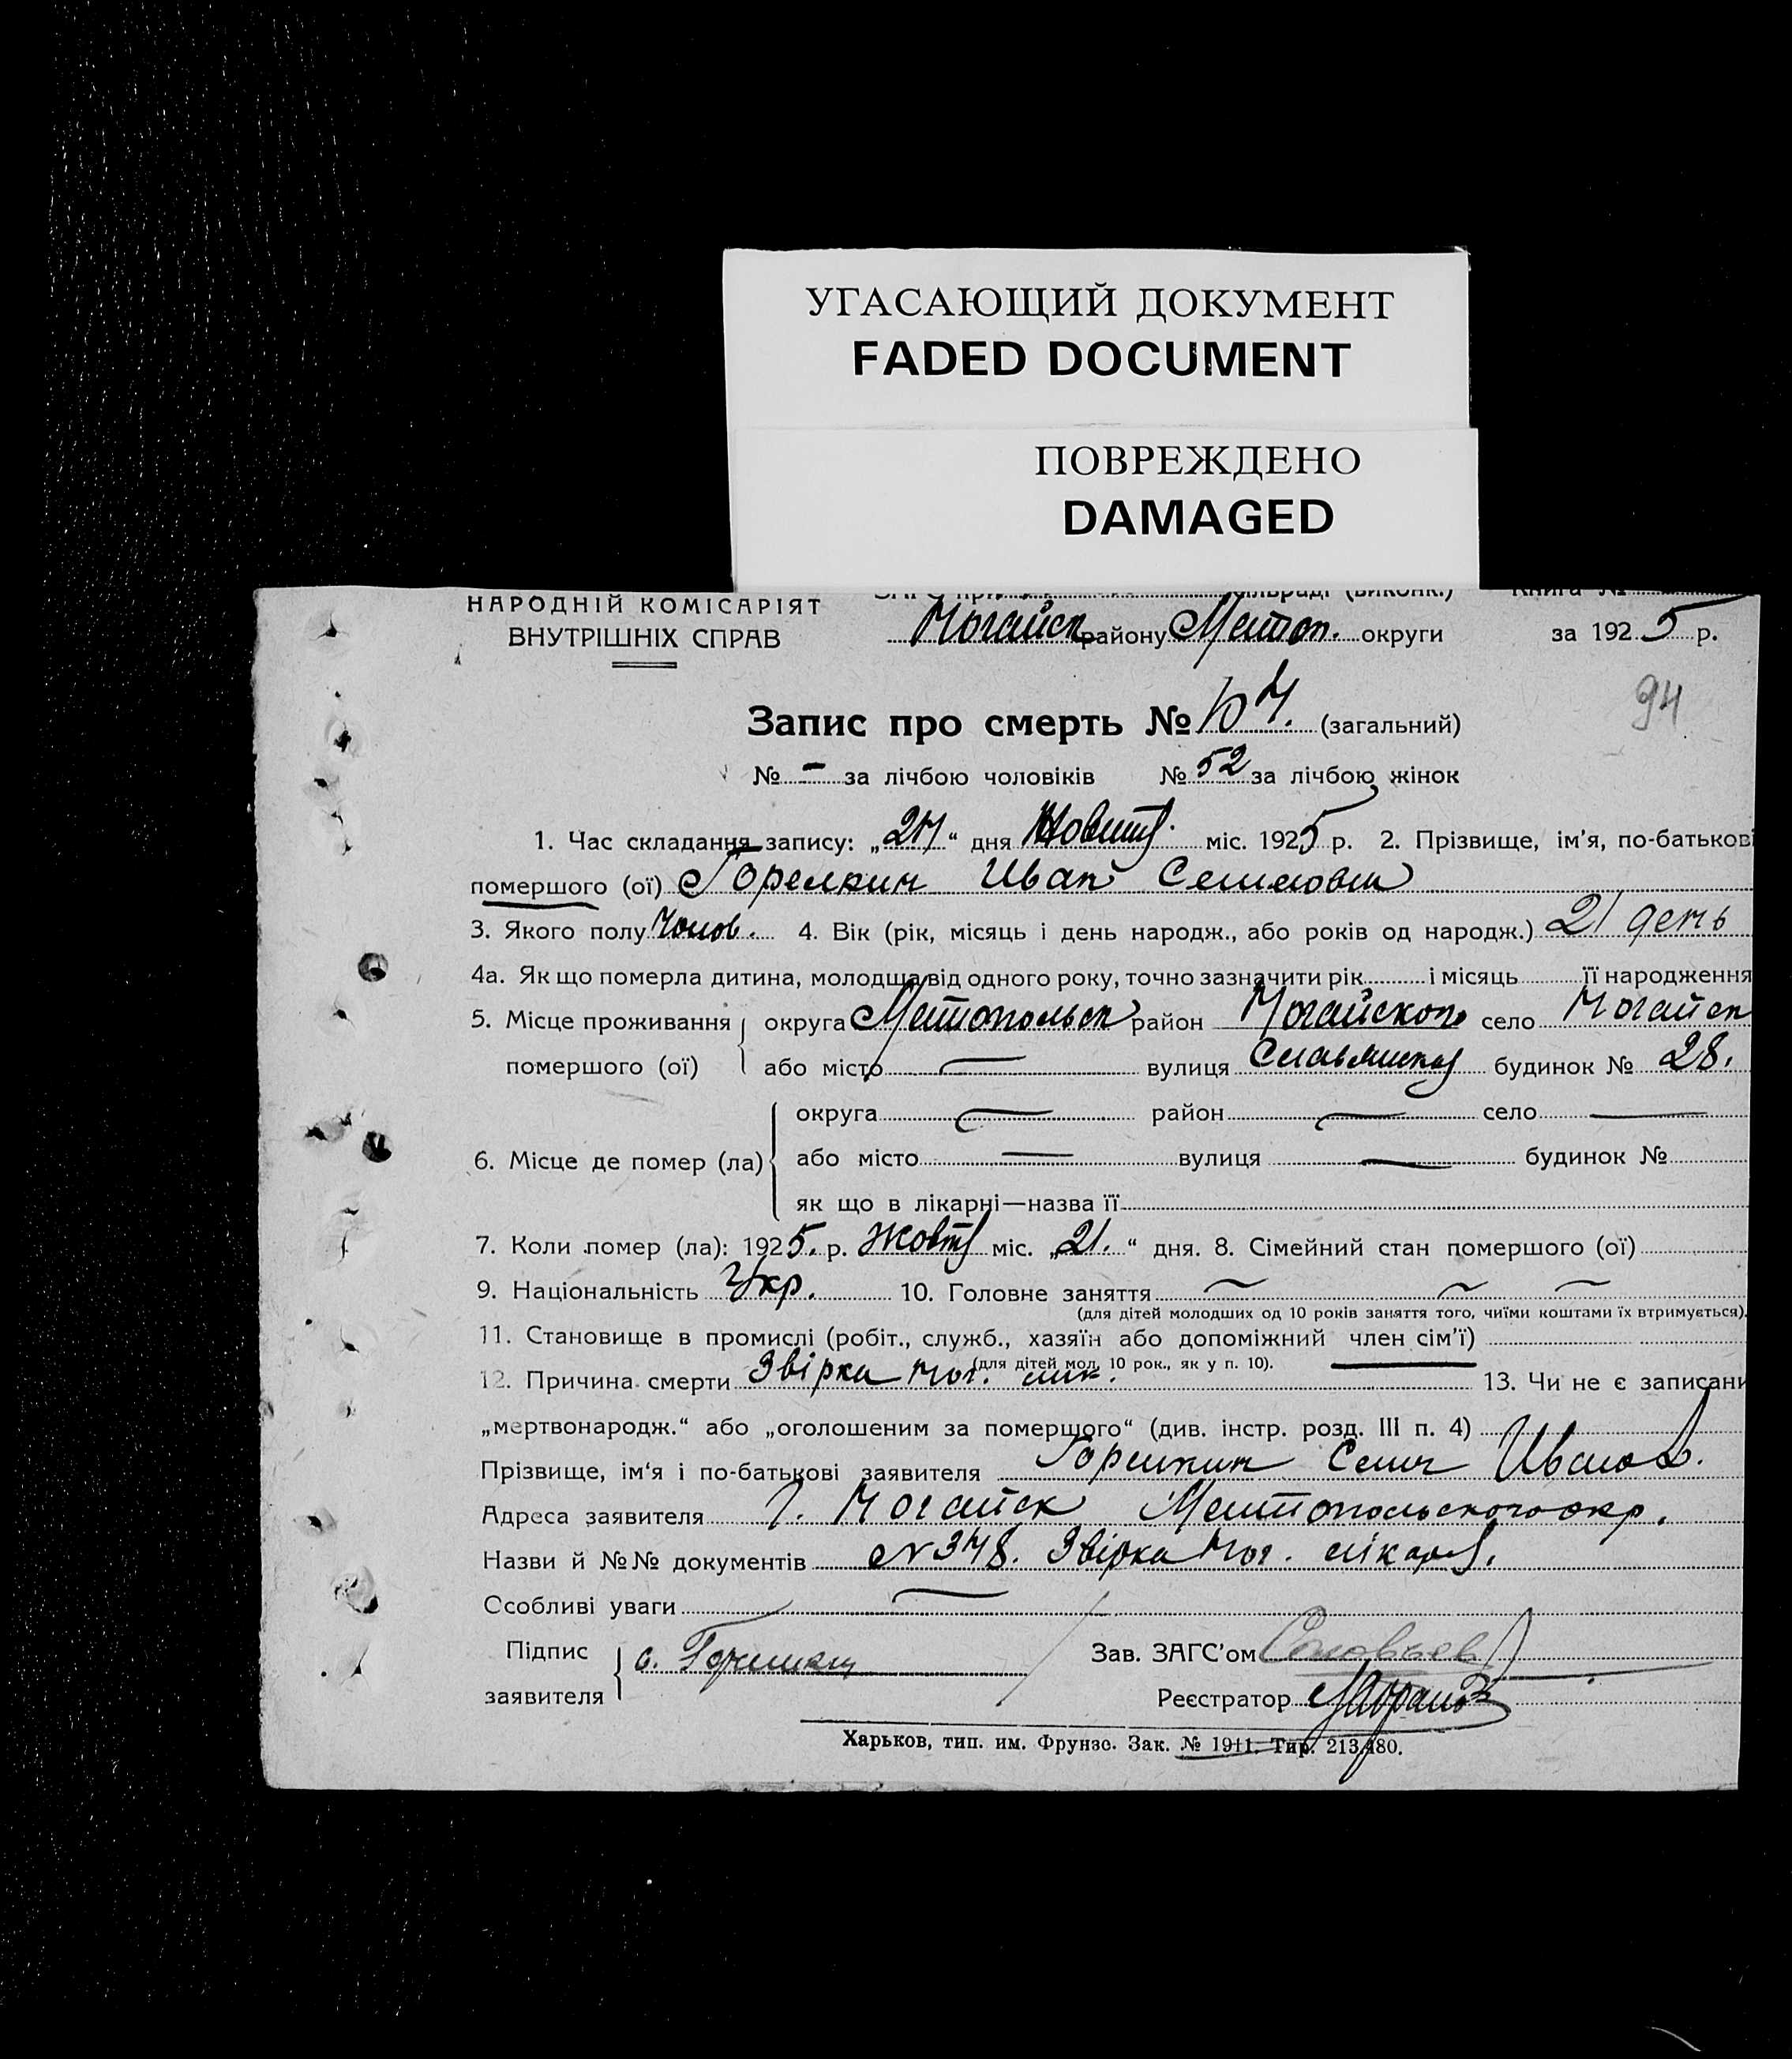 УГАСАЮЩИЙ ДОКУМЕНТ
FADED DOCUMENT
ПОВРЕЖДЕНО
DAMAGED
НАРОДНІЙ КОМІСАРІЯТ
ВНУТРІШНІХ СПРАВ
Ногайск району Мелітоп. округи за 1925 р.
94
Запис про смерть № (загальний)
№ – за лічбою чоловіків № 52 за лічбою жінок
1. Час складання запису: „27“ дня Жовтня міс. 1925 р. 2. Прізвище, ім’я, по-батькові
помершого (ої) Горелкин Иван Семенович
3. Якого полу Чолов. 4. Вік (рік, місяць і день народж., або років од народж.) 21 день
4а. Як що померла дитина, молодща від одного року, точно зазначити рік і місяць її народження
5. Місце проживання округа Мелітопольск район Ногайского село Ногайск
помершого (ої) або місто — вулиця Славянская будинок № 28.
округа — район — село —
6. Місце де помер (ла) або місто — вулиця — будинок №
як що в лікарні—назва її
7. Коли помер (ла): 1925. р. Жовтн міс. „21.“ дня. 8. Сімейний стан помершого (ої)
9. Національність Укр. 10. Головне заняття
(для дітей молодших од 10 років заняття того, чиїми коштами їх втримується).
11. Становище в промислі (робіт., служб., хазяїн або допоміжний член сім’ї)
(для дітей мол. 10 рок., як у п. 10).
12. Причина смерти Звірка Ног. лік. 13. Чи не є записани
„мертвонародж.“ або „оголошеним за помершого“ (див. інстр. розд. III п. 4)
Прізвище, ім‘я і по-батькові заявителя Горелкин Семен Иванов.
Адреса заявителя г. Ногайск Мелитопольского окр.
Назви й №№ документів № 378. Звірка Ног. лікарні.
Особливі уваги —
Підпис
заявителя с. Горелкин
Зав. ЗАГС’ом Соловьев
Реєстратор
Харьков, тип. им. Фрунзе. Зак. № 1911. Тир. 213.480.